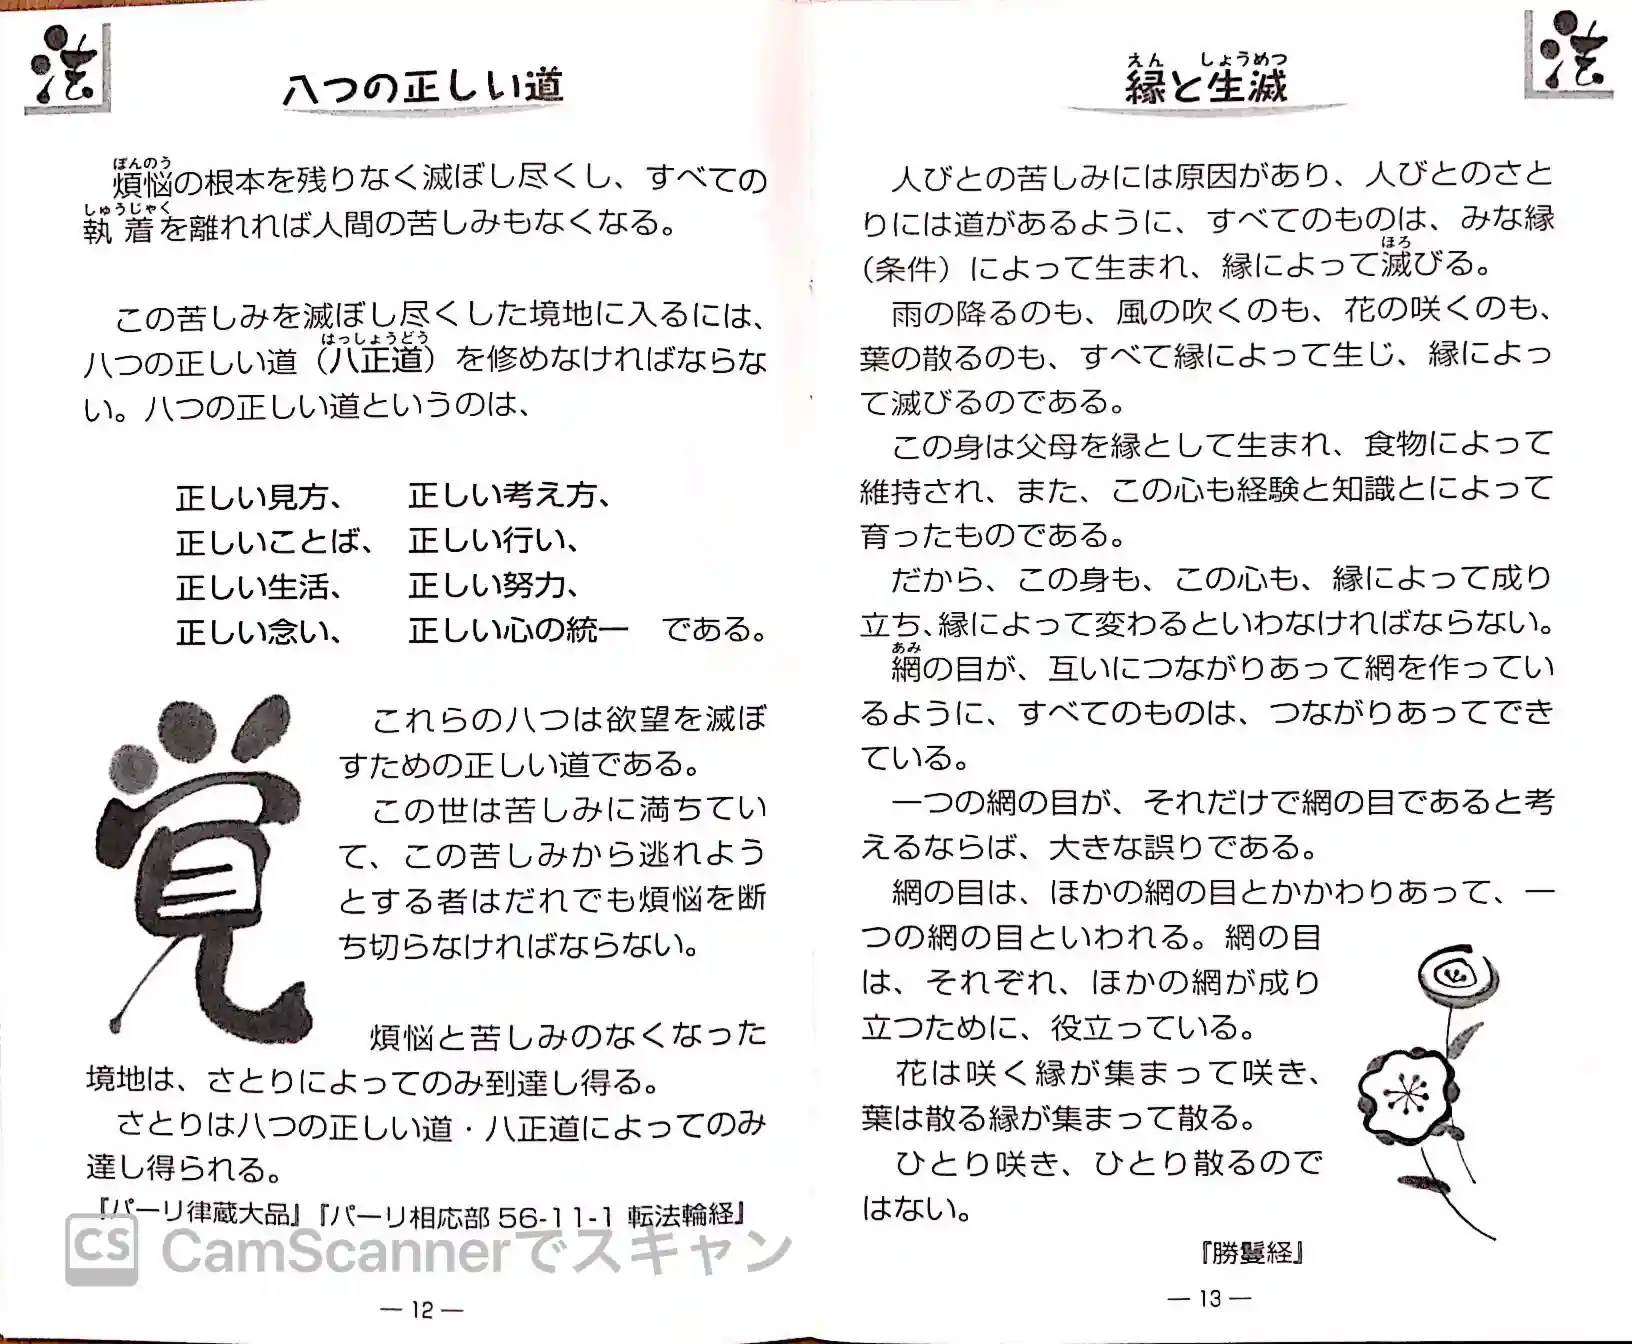 法
八つの正しい道
ぼんのう
煩悩の根本を残りなく滅ぼし尽くし、すべての
しゅうじゃく
執着を離れれば人間の苦しみもなくなる。
この苦しみを滅ぼし尽くした境地に入るには、
はっしょうどう
八つの正しい道（八正道）を修めなければならな
い。八つの正しい道というのは、
正しい見方、 正しい考え方、
正しいことば、 正しい行い、
正しい生活、 正しい努力、
正しい念い、 正しい心の統一 である。
覚
これらの八つは欲望を滅ぼ
すための正しい道である。
この世は苦しみに満ちてい
て、この苦しみから逃れよう
とする者はだれでも煩悩を断
ち切らなければならない。
煩悩と苦しみのなくなった
境地は、さとりによってのみ到達し得る。
さとりは八つの正しい道・八正道によってのみ
達し得られる。
『パーリ律蔵大品』『パーリ相応部 56-11-1 転法輪経』
CS CamScannerでスキャン
— 12 —
法
えん しょうめつ
縁と生滅
人びとの苦しみには原因があり、人びとのさと
りには道があるように、すべてのものは、みな縁
ほろ
（条件）によって生まれ、縁によって滅びる。
雨の降るのも、風の吹くのも、花の咲くのも、
葉の散るのも、すべて縁によって生じ、縁によっ
て滅びるのである。
この身は父母を縁として生まれ、食物によって
維持され、また、この心も経験と知識とによって
育ったものである。
だから、この身も、この心も、縁によって成り
立ち、縁によって変わるといわなければならない。
あみ
網の目が、互いにつながりあって網を作ってい
るように、すべてのものは、つながりあってでき
ている。
一つの網の目が、それだけで網の目であると考
えるならば、大きな誤りである。
網の目は、ほかの網の目とかかわりあって、一
つの網の目といわれる。網の目
は、それぞれ、ほかの網が成り
立つために、役立っている。
花は咲く縁が集まって咲き、
葉は散る縁が集まって散る。
ひとり咲き、ひとり散るので
はない。
『勝鬘経』
— 13 —